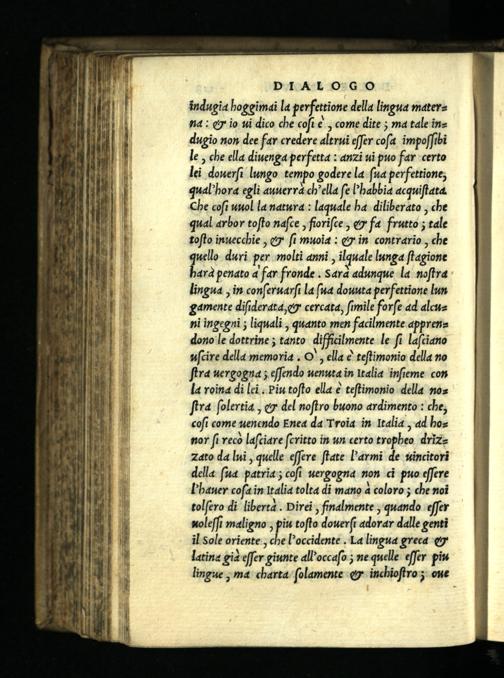 DIALOGO
indugia hoggimai la perfettione della lingua mater=
na: & io ui dico che cosi è, come dite; ma tale in=
dugio non dee far credere altrui esser cosa impossibi
le, che ella diuenga perfetta: anzi ui puo far certo
lei douersi lungo tempo godere la sua perfettione,
qual'hora egli auuerrà ch'ella se l'habbia acquistata.
Che cosi uuol la natura: laquale ha diliberato, che
qual arbor tosto nasce, fiorisce, & fa frutto; tale
tosto inuecchie, & si muoia: & in contrario, che
quello duri per molti anni, ilquale lunga stagione
harà penato a far fronde. Sarà adunque la nostra
lingua, in conseruarsi la sua douuta perfettione lun
gamente disiderata, & cercata, simile forse ad alcu=
ni ingegni; liquali, quanto men facilmente appren=
dono le dottrine; tanto difficilmente le si lasciano
uscire della memoria. O', ella è testimonio della no
stra uergogna; essendo uenuta in Italia insieme con
la roina di lei. Piu tosto ella è testimonio della no=
stra solertia, & del nostro buono ardimento: che,
cosi come uenendo Enea da Troia in Italia, ad ho=
nor si recò lasciare scritto in un certo tropheo driz=
zato da lui, quelle essere state l'armi de uincitori
della sua patria; cosi uergogna non ci puo essere
l'hauer cosa in Italia tolta di mano à coloro; che noi
tolsero di libertà. Direi, finalmente, quando esser
uolessi maligno, piu tosto douersi adorar dalle genti
il Sole oriente, che l'occidente. La lingua greca &
latina già esser giunte all'occaso; ne quelle esser piu
lingue, ma charta solamente & inchiostro; oue